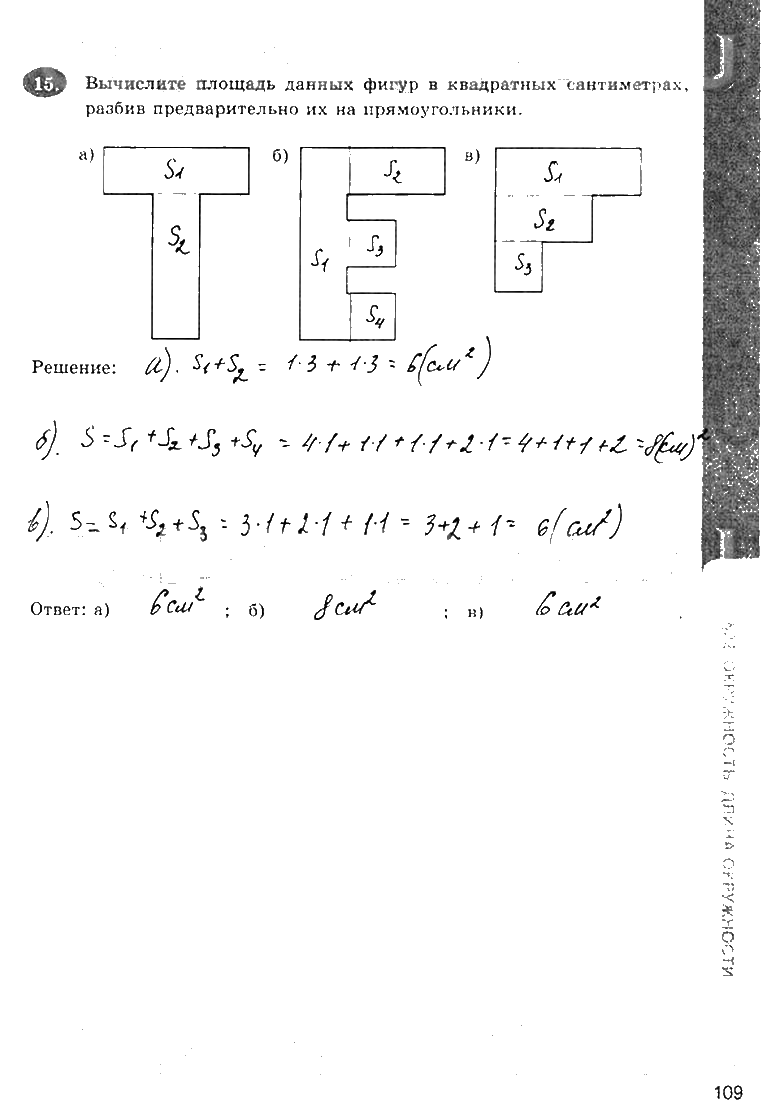 15. Вычислите площадь данных фигур в квадратных сантиметрах,
разбив предварительно их на прямоугольники.
а) S1 S2
б) S1 S2 S3 S4
в) S1 S2 S3
Решение: а). S₁+S₂ = 1·3 + 1·3 = 6(см²)
б). S=S₁+S₂+S₃+S₄ = 4·1+1·1+1·1+2·1=4+1+1+2=8(см)²
в). S=S₁+S₂+S₃ = 3·1+2·1+1·1 = 3+2+1= 6(см²)
Ответ: а) 6см² ; б) 8см² ; в) 6см² .
ОКРУЖНОСТЬ ДЛИНА ОКРУЖНОСТИ
109